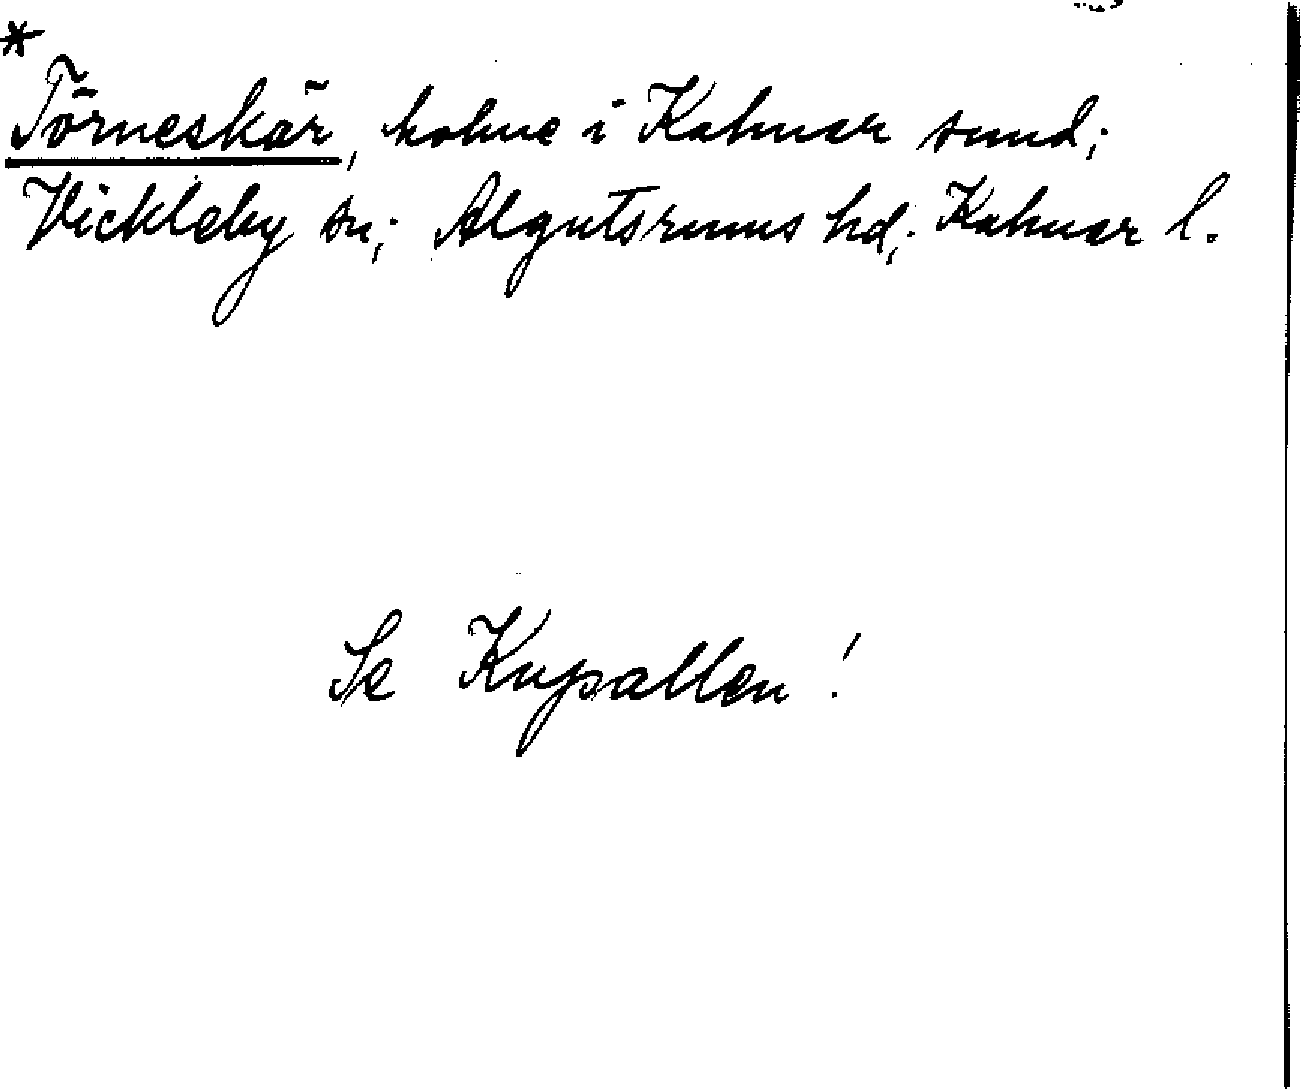 *
Törneskär, holme i Kalmar sund;
Vickleby sn; Algutsrums hd; Kalmar l.
Se Knpallen!